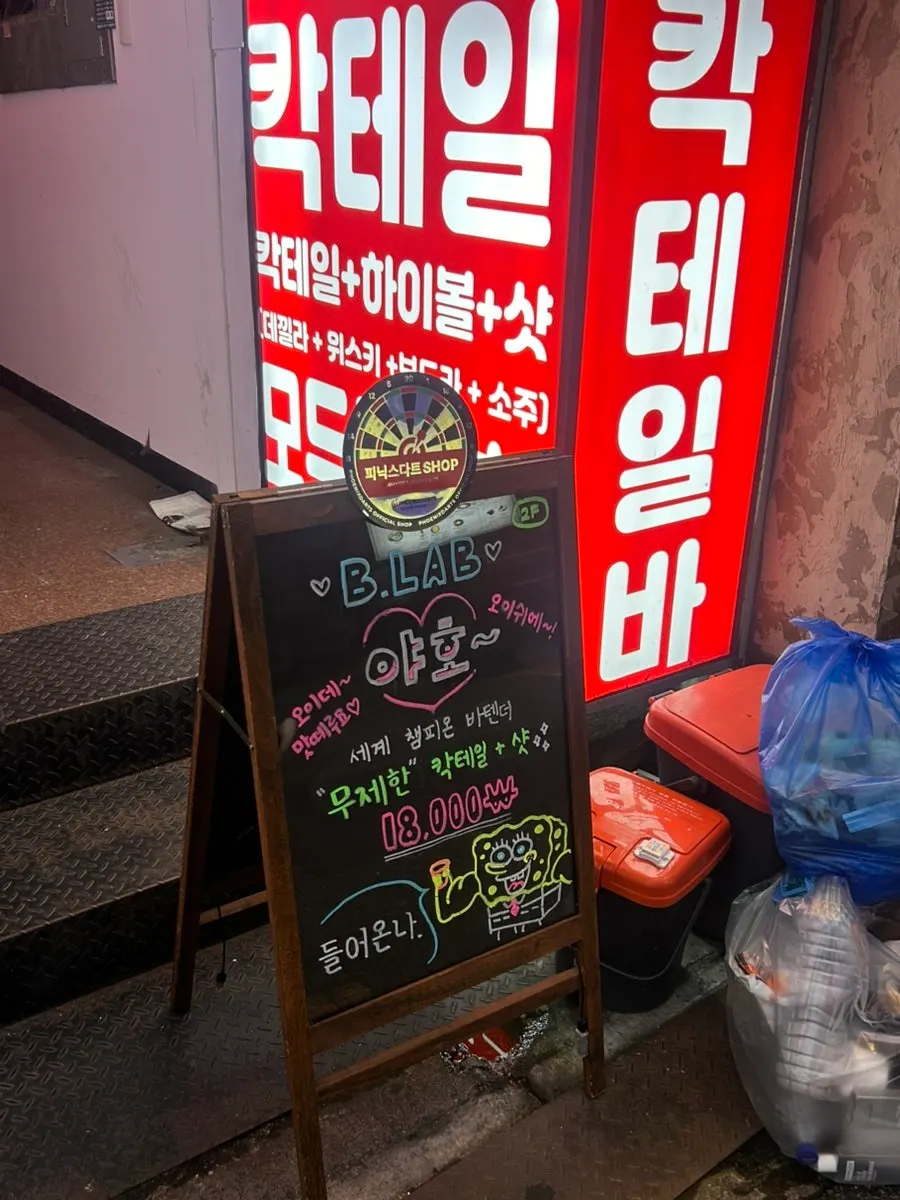 칵테일
칵테일+하이볼+샷
(데낄라 + 위스키 +보드카 + 소주)
모든
칵
테
일
바
피닉스다트SHOP
PHOENIXDARTS OFFICIAL SHOP
2F
B.LAB
오이쉬에~!
야호~
오이데~
맛떼루요♡
세계 챔피온 바텐더
"무제한" 칵테일 + 샷
18.000₩
들어온나.